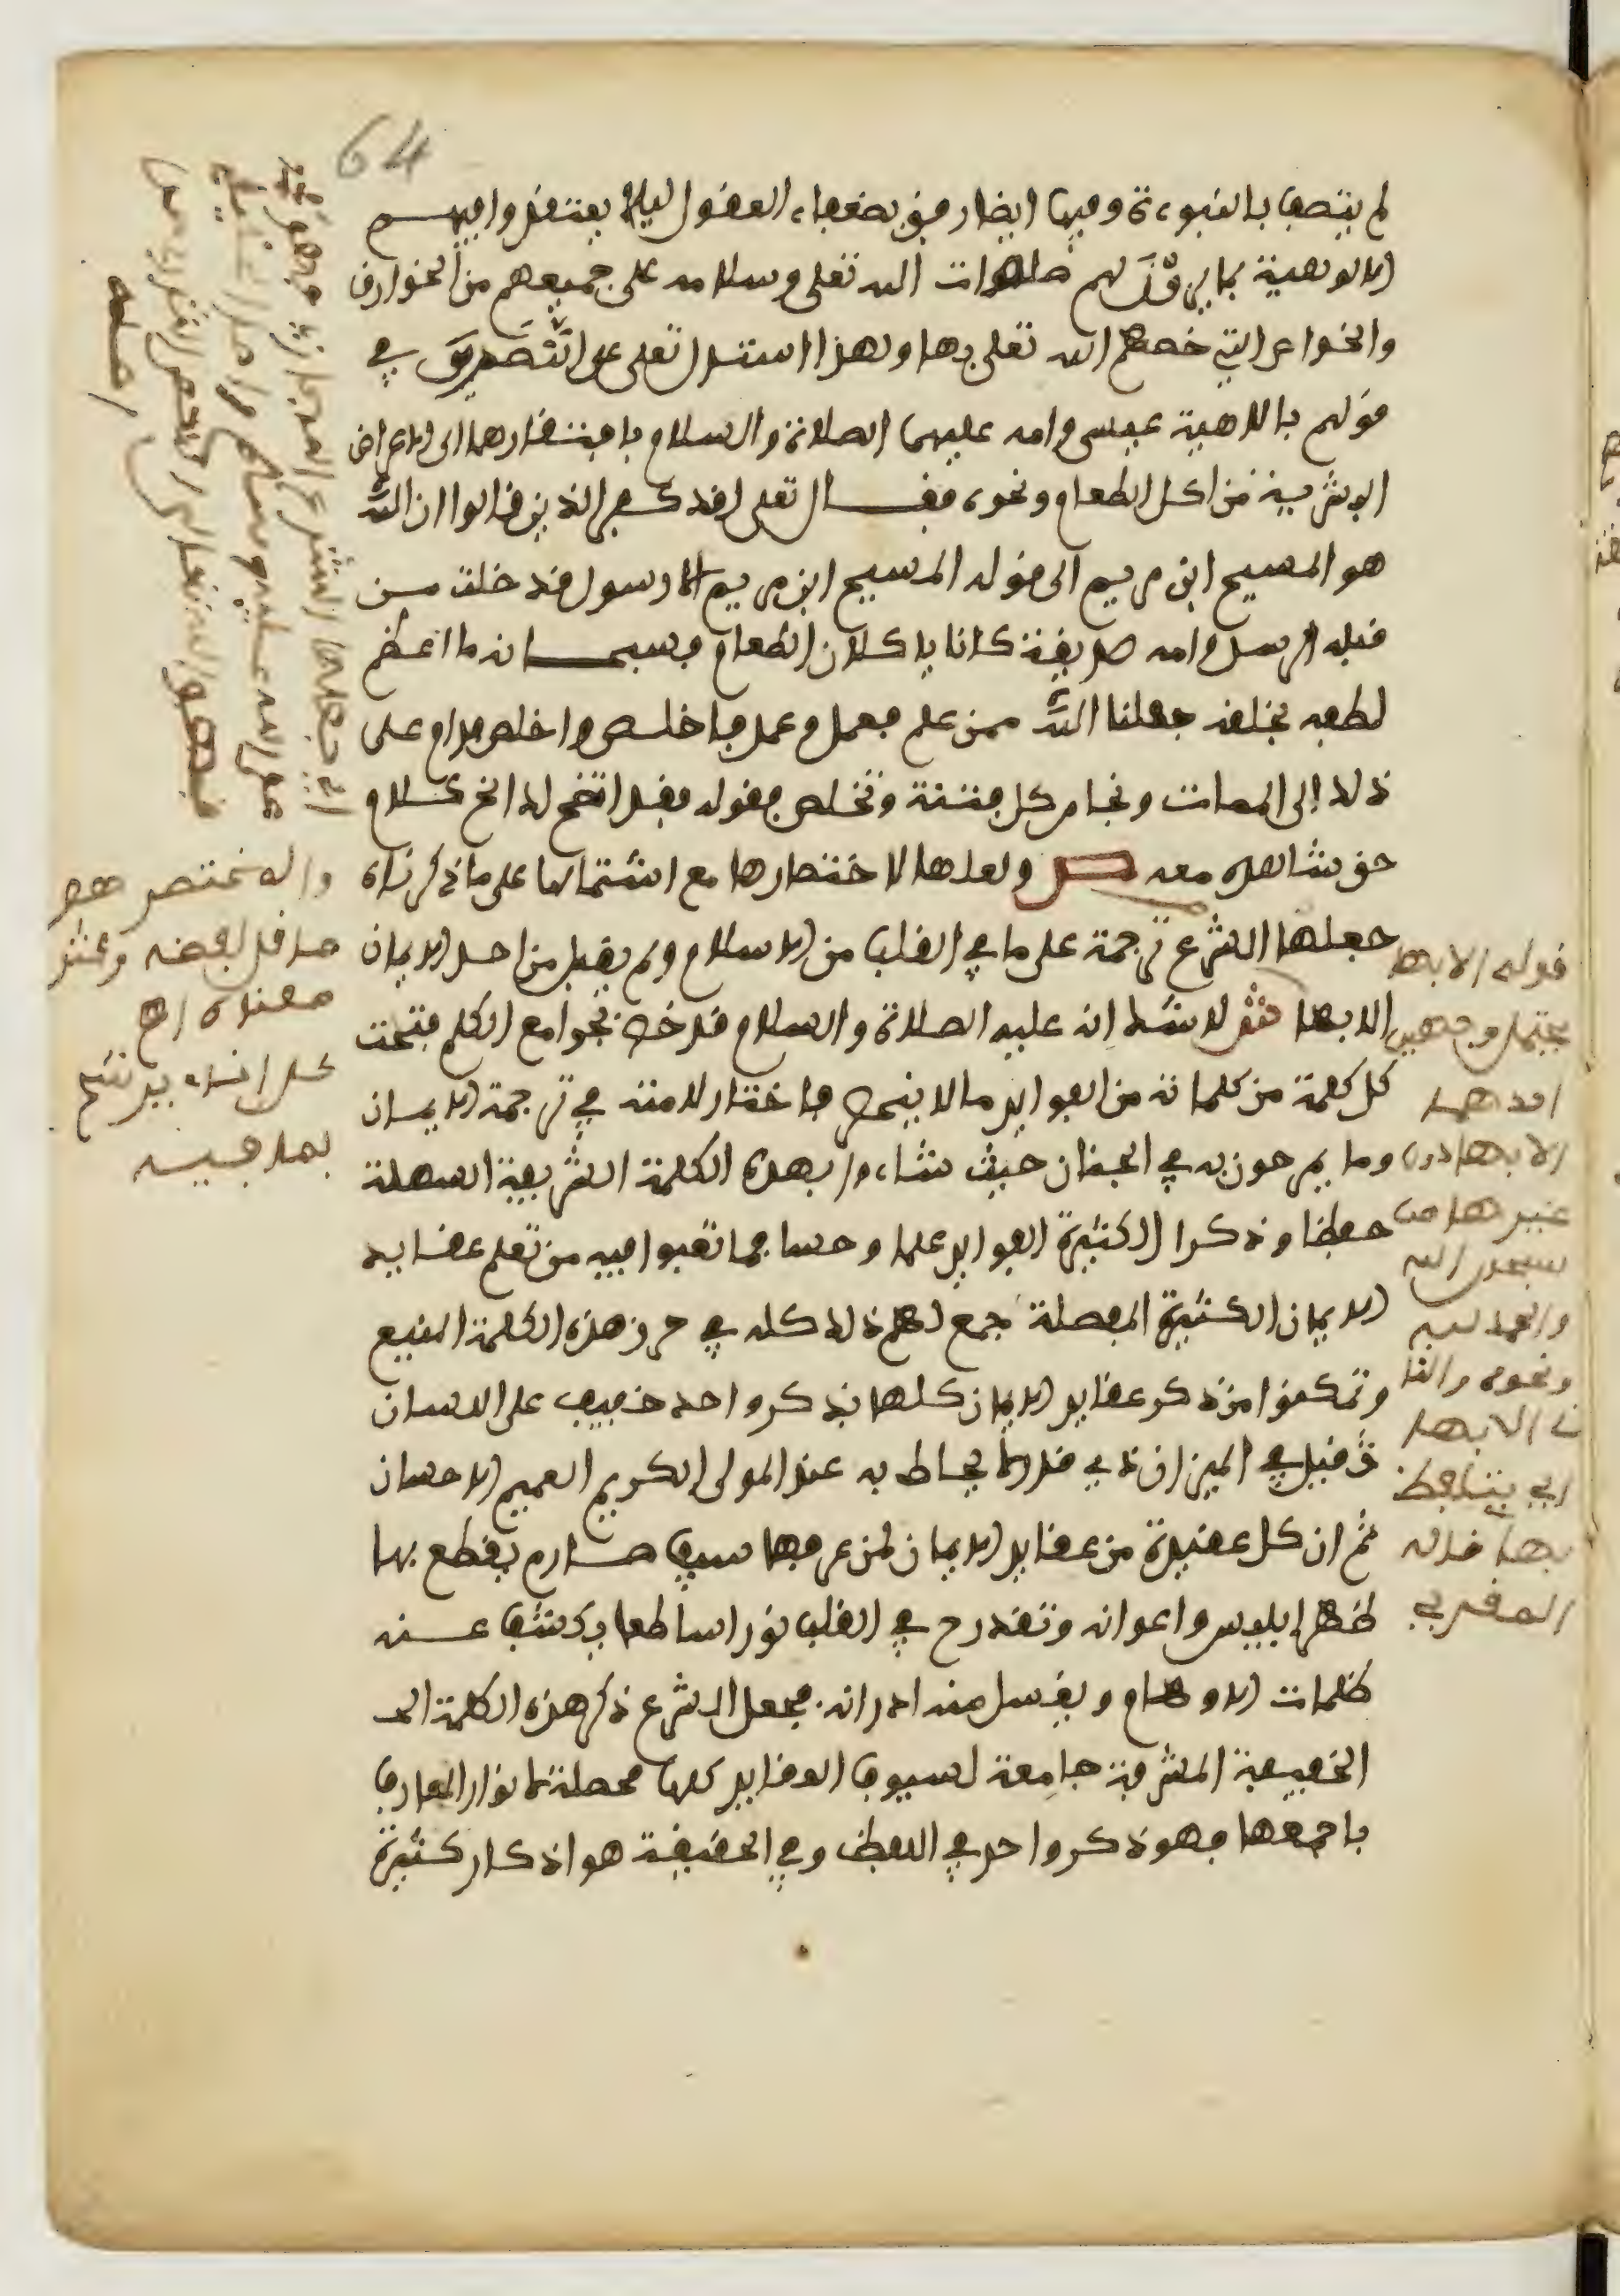 64
لم يتصف بالنبوءة وفيها ايضا رفق بضعفاء العقول ليلا يعتقدوا فيهم
الالوهية بما يرون لهم صلوات الله تعلى وسلامه على جميعهم من الخوارق
والخواص التي خصهم الله تعلى بها ولهذا استدل تعلى على النصارى في
قولهم بالاهية عيسى وامه عليهما الصلاة والسلام بافتقارهما الى الاعراض
البشرية من اكل الطعام ونحوه فقال تعلى لقد كفر الذين قالوا ان الله
هو المسيح ابن مريم الى قوله المسيح ابن مريم الا رسول قد خلت من
قبله الرسل وامه صديقة كانا ياكلان الطعام فسبحانه ما اعظم
لطفه بخلقه جعلنا الله ممن علم فعمل وعمل فاخلص واخلص فدام على
ذلك الى الممات ونجا من كل فتنة وتخلص فقوله فقد اتضح لك الخ كلام
حق شاهده معه ص ولعلها لاختصارها مع اشتمالها على ما ذكرناه
جعلها الشرع ترجمة على ما في القلب من الاسلام ولم يقبل من احد الايمان
الا بها ش لا شك انه عليه الصلاة والسلام قد خص بجوامع الكلم فتحت
كل كلمة من كلماته من الفوايد ما لا ينحصر فاختار لامته في ترجمة الايمان
وما يمرحون به في الجنان حيث شاءوا بهذه الكلمة الشريفة السهلة
حفظا وذكرا الكثيرة الفوايد علما وحسا فما تعبوا فيه من تعلم عقايد
الايمان الكثيرة المفصلة جمع لهم ذلك كله في حرز هذه الكلمة المنيع
وتمكنوا من ذكر عقايد الايمان كلها بذكر واحد خفيف على اللسان
ثقيل في الميزان ذي قدر لا يحاط به عند المولى الكريم العميم الاحسان
ثم ان كل عقيدة من عقايد الايمان لمن عرفها سيف صارم يقطع بها
ظهر ابليس واعوانه وتقدح في القلب نورا ساطعا يكشف عنه
ظلمات الاوهام ويغسل منه ادرانه فجعل الشرع ذكر هذه الكلمة
الخفيفة المشرفة جامعة لسيوف العقايد كلها محصلة لانوار المعارف
باجمعها فهو ذكر واحد في اللفظ وفي الحقيقة هو اذكار كثيرة
قوله الا بها
يحتمل وجهين
احدهما
الا بها دون
غيرها من
سبحان الله
والحمد لله
ونحوه والثا
ني الا بها
اي بتلفظ
بها قاله
المقري
والمختصر هو
ما قل لفظه وكثر
معناه اهـ
كل اناء يرشح
بما فيه